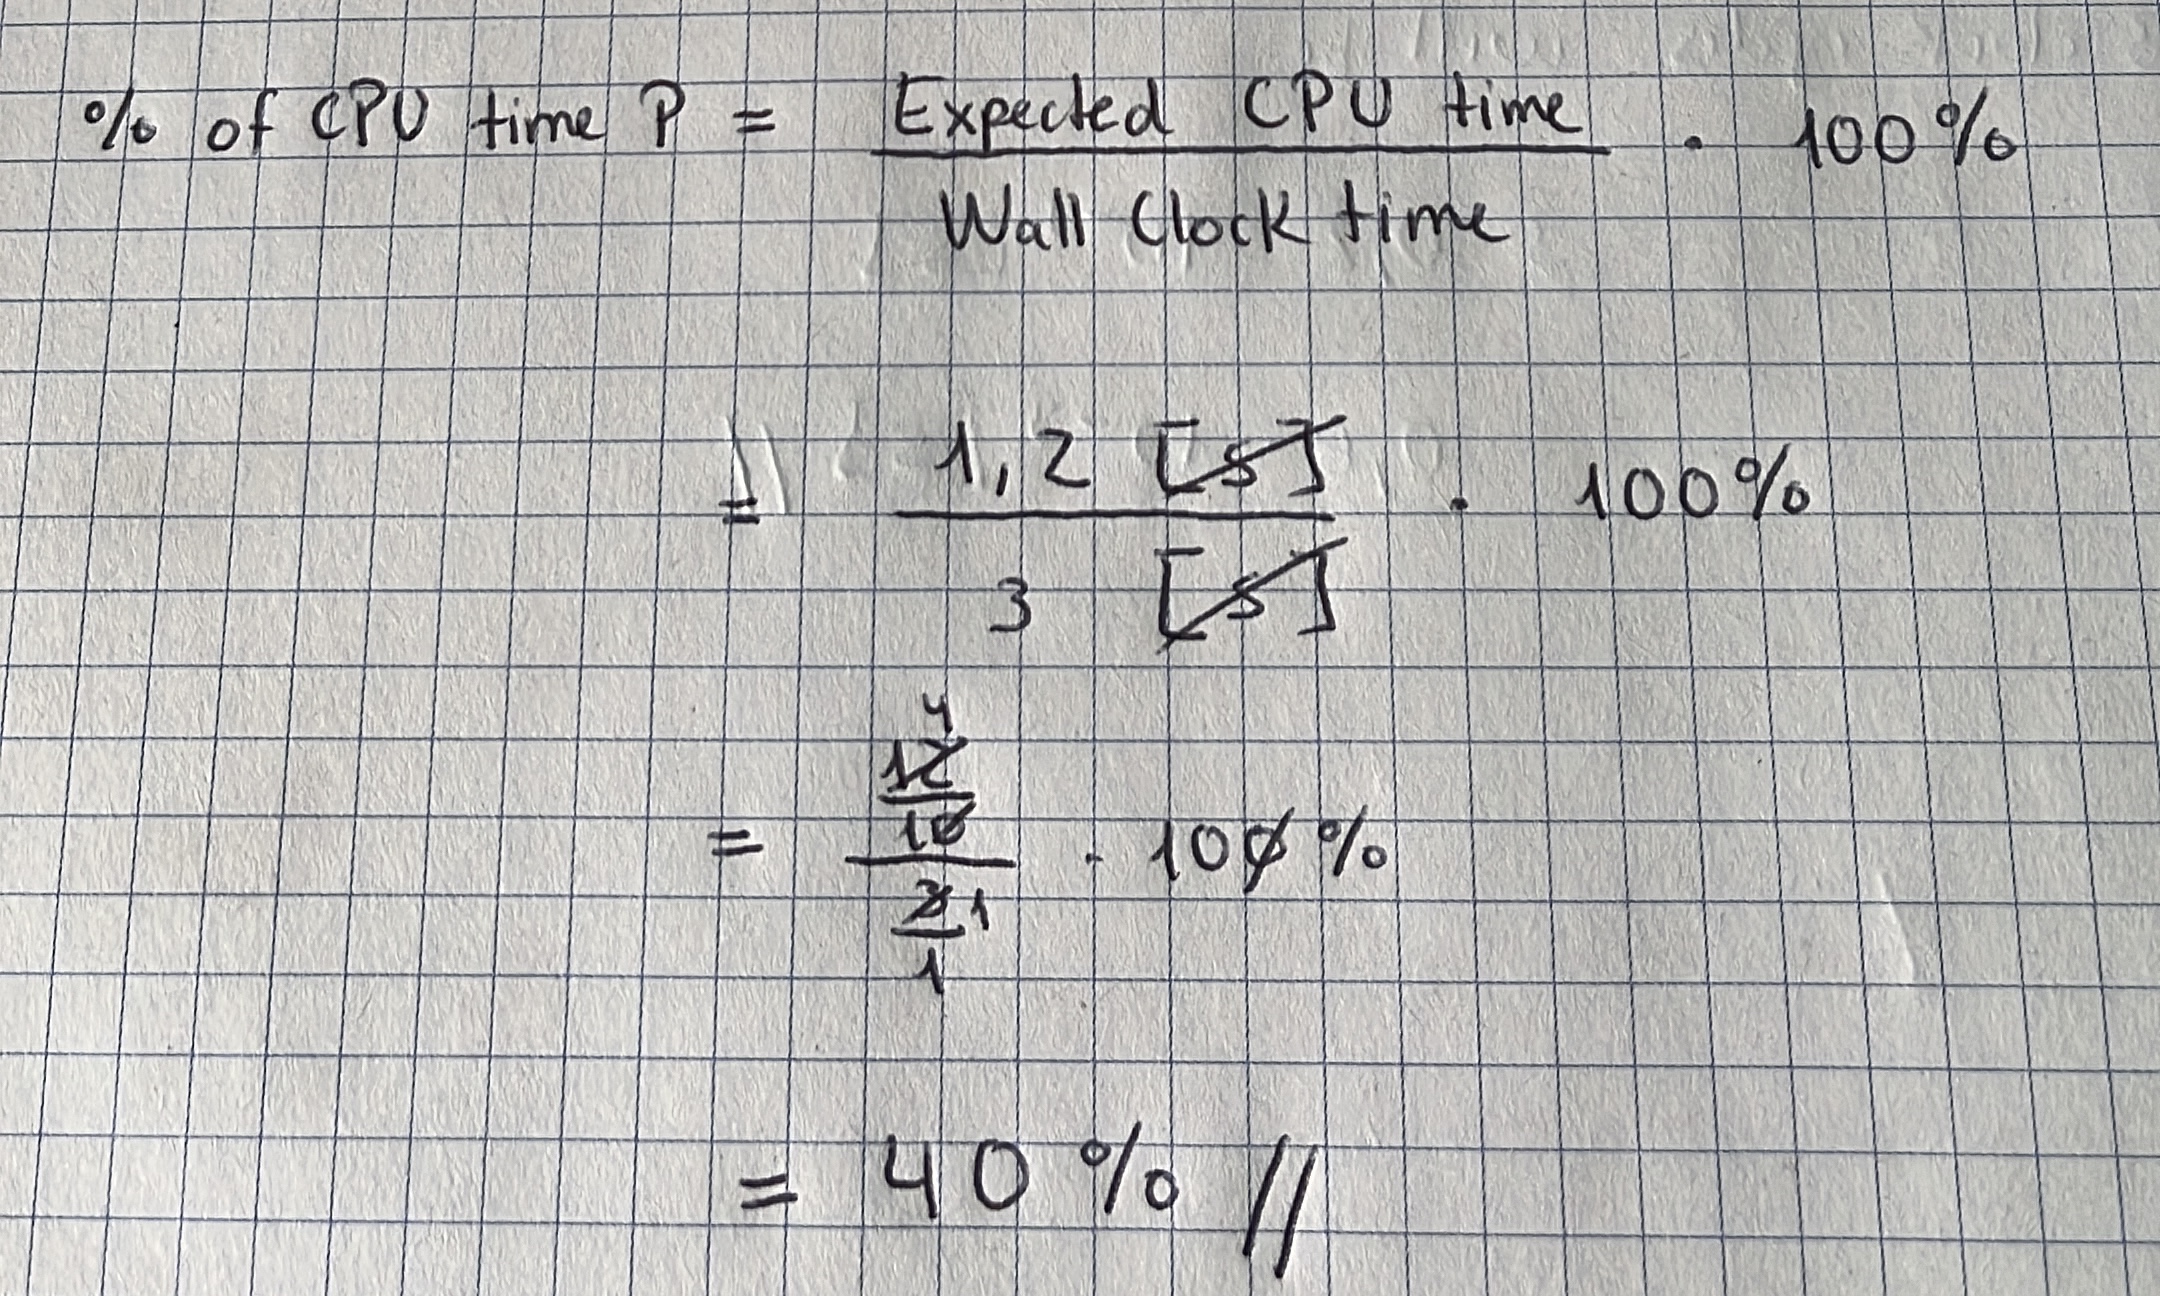 % of CPU time P = Expected CPU time / Wall Clock time · 100%
= 1,2 [s] / 3 [s] · 100%
4
= 12/10 / 3/1 1 · 100%
= 40% //